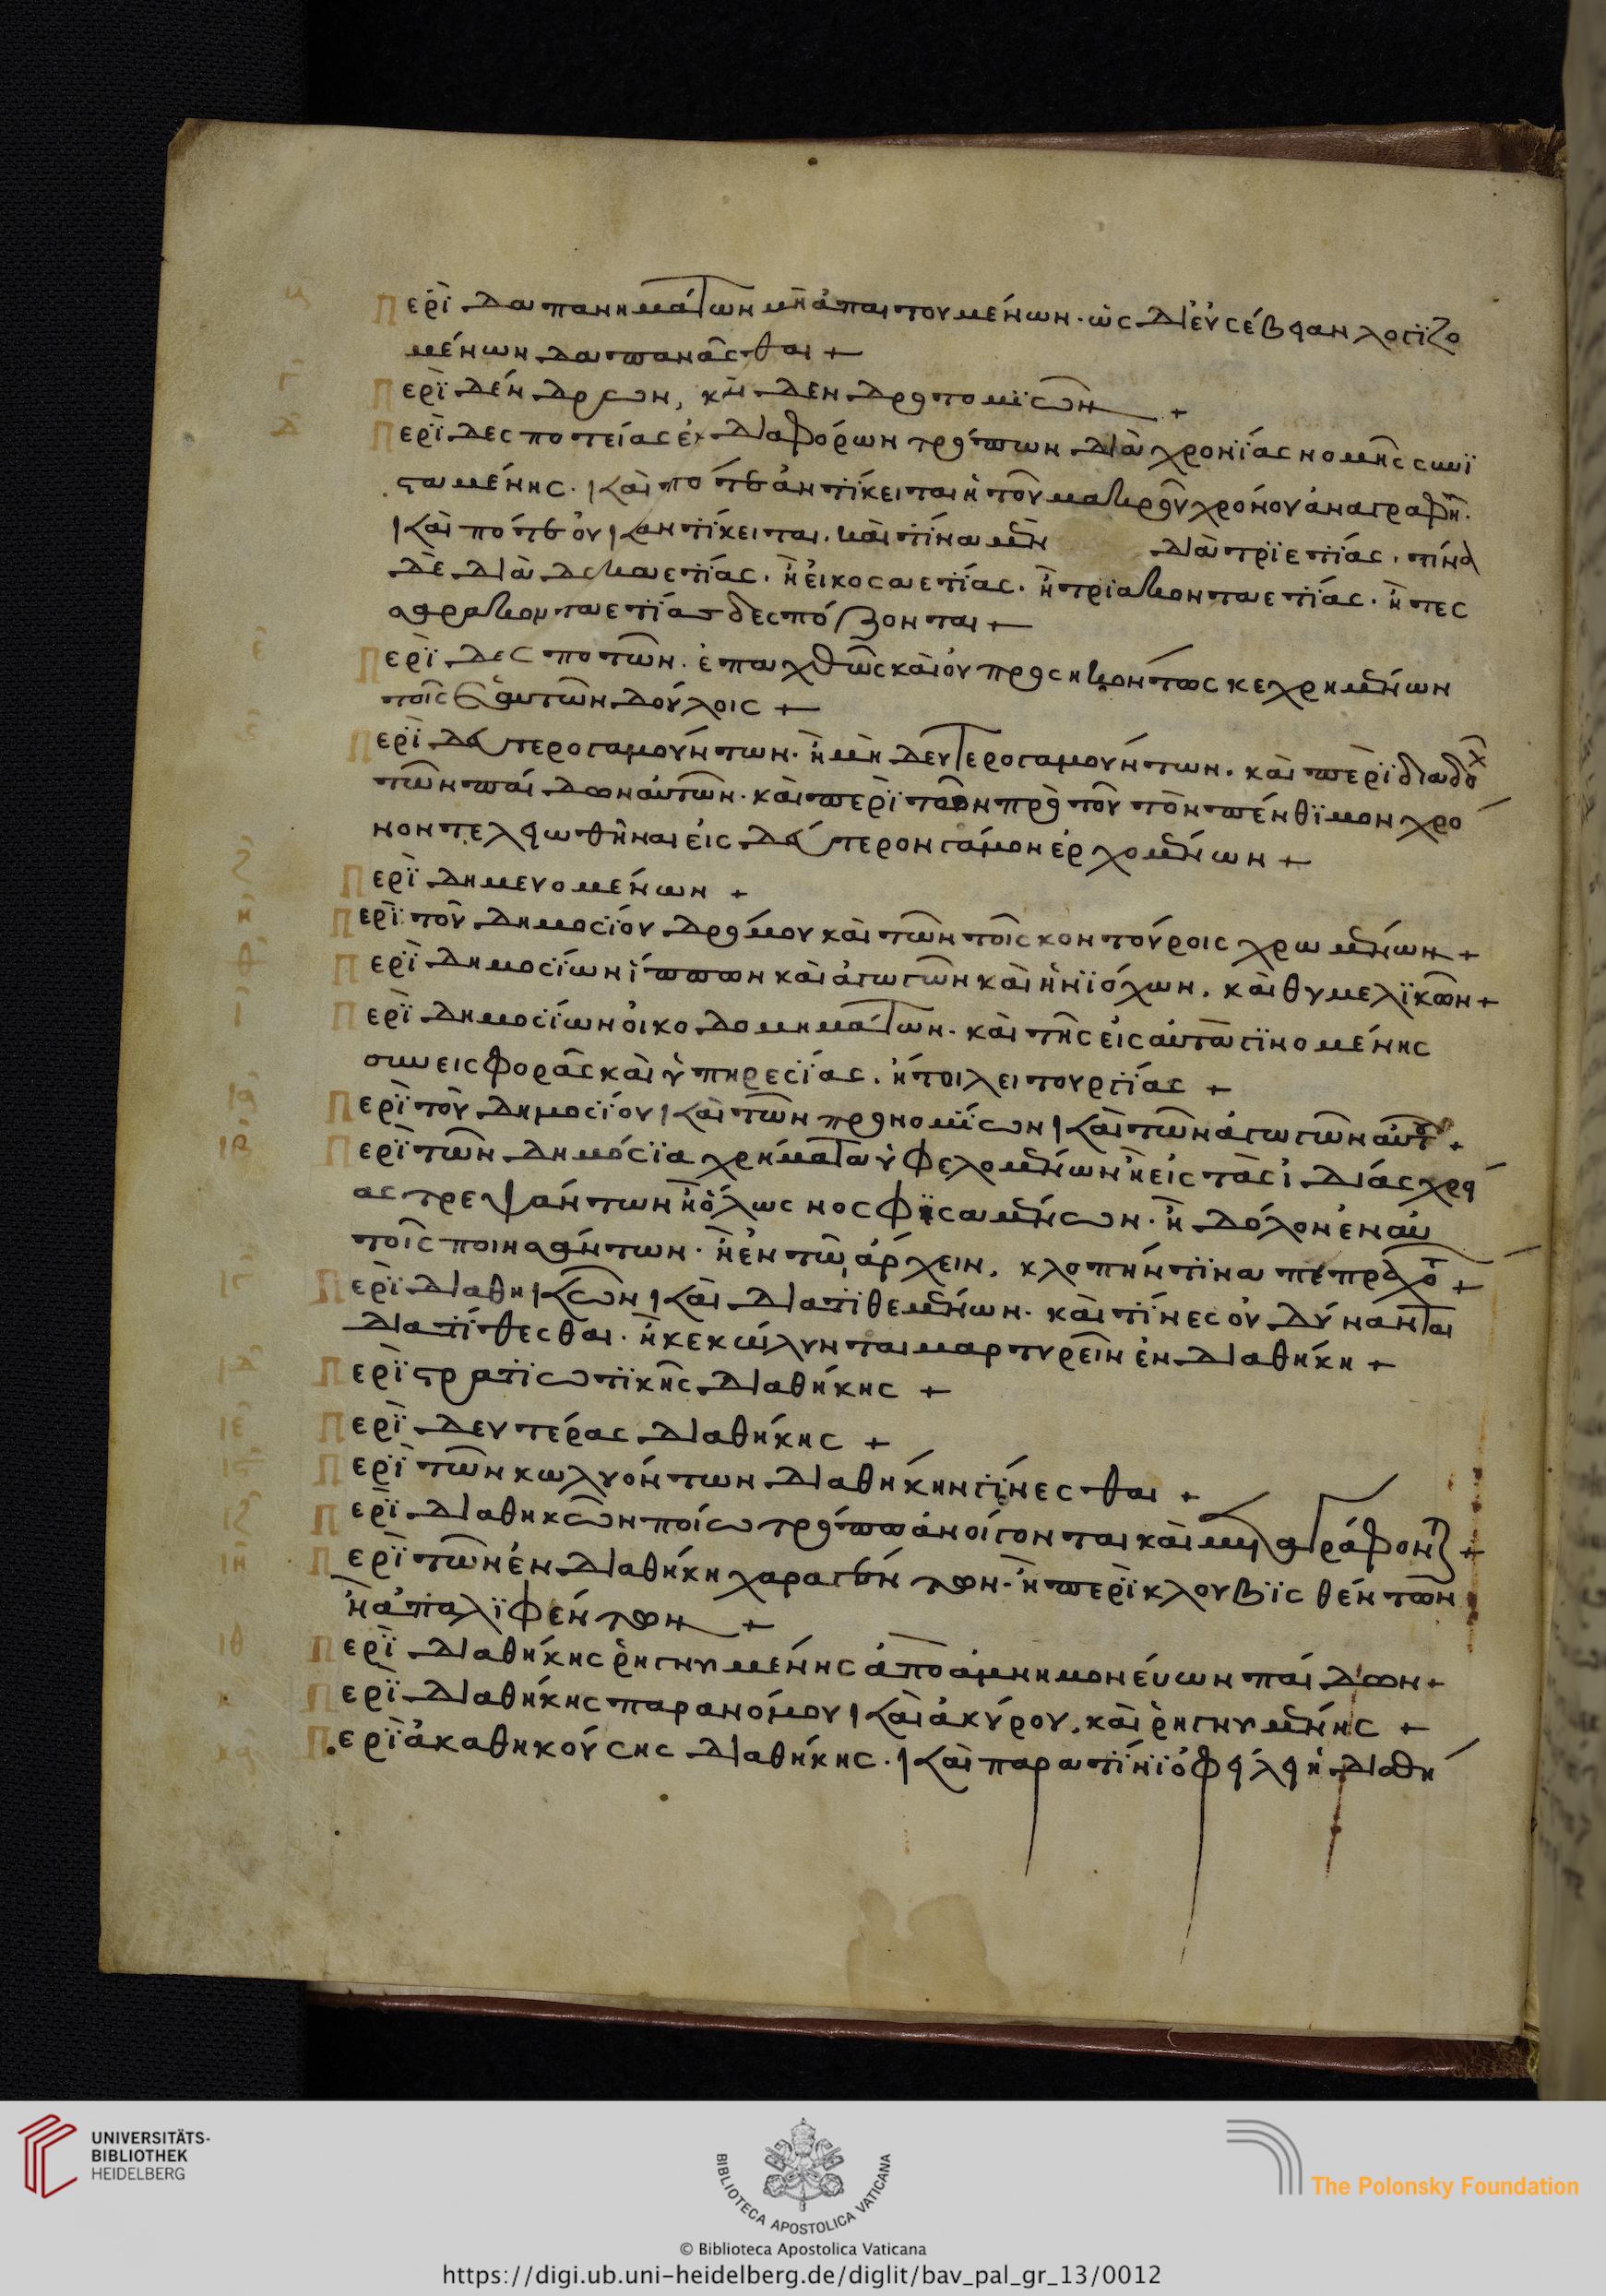 Περὶ δαπανημάτων μὴ ἀπαιτουμένων· ὡς δι' εὐσέβειαν λογιζο
μένων δαπανᾶσθαι +
γ Περὶ δένδρων, καὶ δενδροτομιῶν +
δ Περὶ δεσποτείας ἐκ διαφόρων τρόπων διὰ χρονίας νομῆς συνι
σταμένης· καὶ πότε ἀντίκειται ἡ τοῦ μακροῦ χρόνου ἀναγραφή·
καὶ πότε οὐκ ἀντίκειται. καὶ τίνα μὲν διὰ τριετίας. τίνα
δὲ διὰ δεκαετίας. ἢ εἰκοσαετίας. ἢ τριακονταετίας. ἢ τεσ
σαρακονταετίας δεσπόζονται +
ε Περὶ δεσποτῶν. ἐπαχθῶς καὶ οὐ προσηκόντως κεχρημένων
τοῖς ἑαυτῶν δούλοις +
Περὶ δευτερογαμούντων. ἢ μὴ δευτερογαμούντων. καὶ περὶ διαδοχ
τῶν παίδων αὐτῶν. καὶ περὶ τῶν πρὸ τοῦ τὸν πένθιμον χρό
νον τελειωθῆναι εἰς δεύτερον γάμον ἐρχομένων +
ζ Περὶ δημευομένων +
η Περὶ τοῦ δημοσίου δρόμου καὶ τῶν τοῖς κοντούροις χρωμένων +
θ Περὶ δημοσίων ἵππων καὶ ἀγωγῶν καὶ ἡνιόχων. καὶ θυμελικῶν +
ι Περὶ δημοσίων οἰκοδομημάτων. καὶ τῆς εἰς αὐτὰ γινομένης
συνεισφορᾶς καὶ ὑπηρεσίας. ἤτοι λειτουργίας +
ια Περὶ τοῦ δημοσίου καὶ τῶν προνομίων καὶ τῶν ἀγωγῶν αὐτοῦ +
ιβ Περὶ τῶν δημόσια χρήματα ὑφελομένων ἢ εἰς τὰς ἰδίας χρεί
ας τρεψάντων ἢ ὅλως νοσφισαμένων. ἢ δόλον ἐν αὐ
τοῖς ποιησάντων. ἢ ἐν τῷ ἄρχειν. κλοπήν τινα πεπραχότ +
ιγ Περὶ διαθηκῶν καὶ διατιθεμένων. καὶ τίνες οὐ δύνανται
διατίθεσθαι. ἢ κεκώλυνται μαρτυρεῖν ἐν διαθήκη +
ιδ Περὶ στρατιωτικῆς διαθήκης +
ιε Περὶ δευτέρας διαθήκης +
ις Περὶ τῶν κωλυόντων διαθήκην γίνεσθαι +
ιζ Περὶ διαθηκῶν ποίω τρόπω ἀνοίγονται καὶ μεταγράφονται +
ιη Περὶ τῶν ἐν διαθήκη χαραγέντων. ἢ περικλουβισθέντων
ἢ ἀπαλιφέντων +
ιθ Περὶ διαθήκης ῥηγνυμένης ἀπὸ ἀμνημονεύων παίδων +
κ Περὶ διαθήκης παρανόμου καὶ ἀκύρου. καὶ ῥηγνυμένης +
κα Περὶ ἀκαθηκούσης διαθήκης. καὶ παρὰ τίνι ὀφείλει ἡ διαθή
UNIVERSITÄTS-
BIBLIOTHEK
HEIDELBERG
BIBLIOTECA APOSTOLICA VATICANA
The Polonsky Foundation
© Biblioteca Apostolica Vaticana
https://digi.ub.uni-heidelberg.de/diglit/bav_pal_gr_13/0012